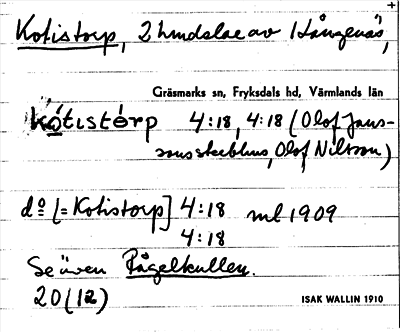 Kotistorp, 2 hmdslae av Hångenäs,
Gräsmarks sn, Fryksdals hd, Värmlands län
kótistòrp 4:18, 4:18 (Olof Jans-
sons sterbhus, Olof Nilsson)
do [= Kotistorp] 4:18 ml 1909
4:18
Se även Fågelkullen.
20(12)
ISAK WALLIN 1910